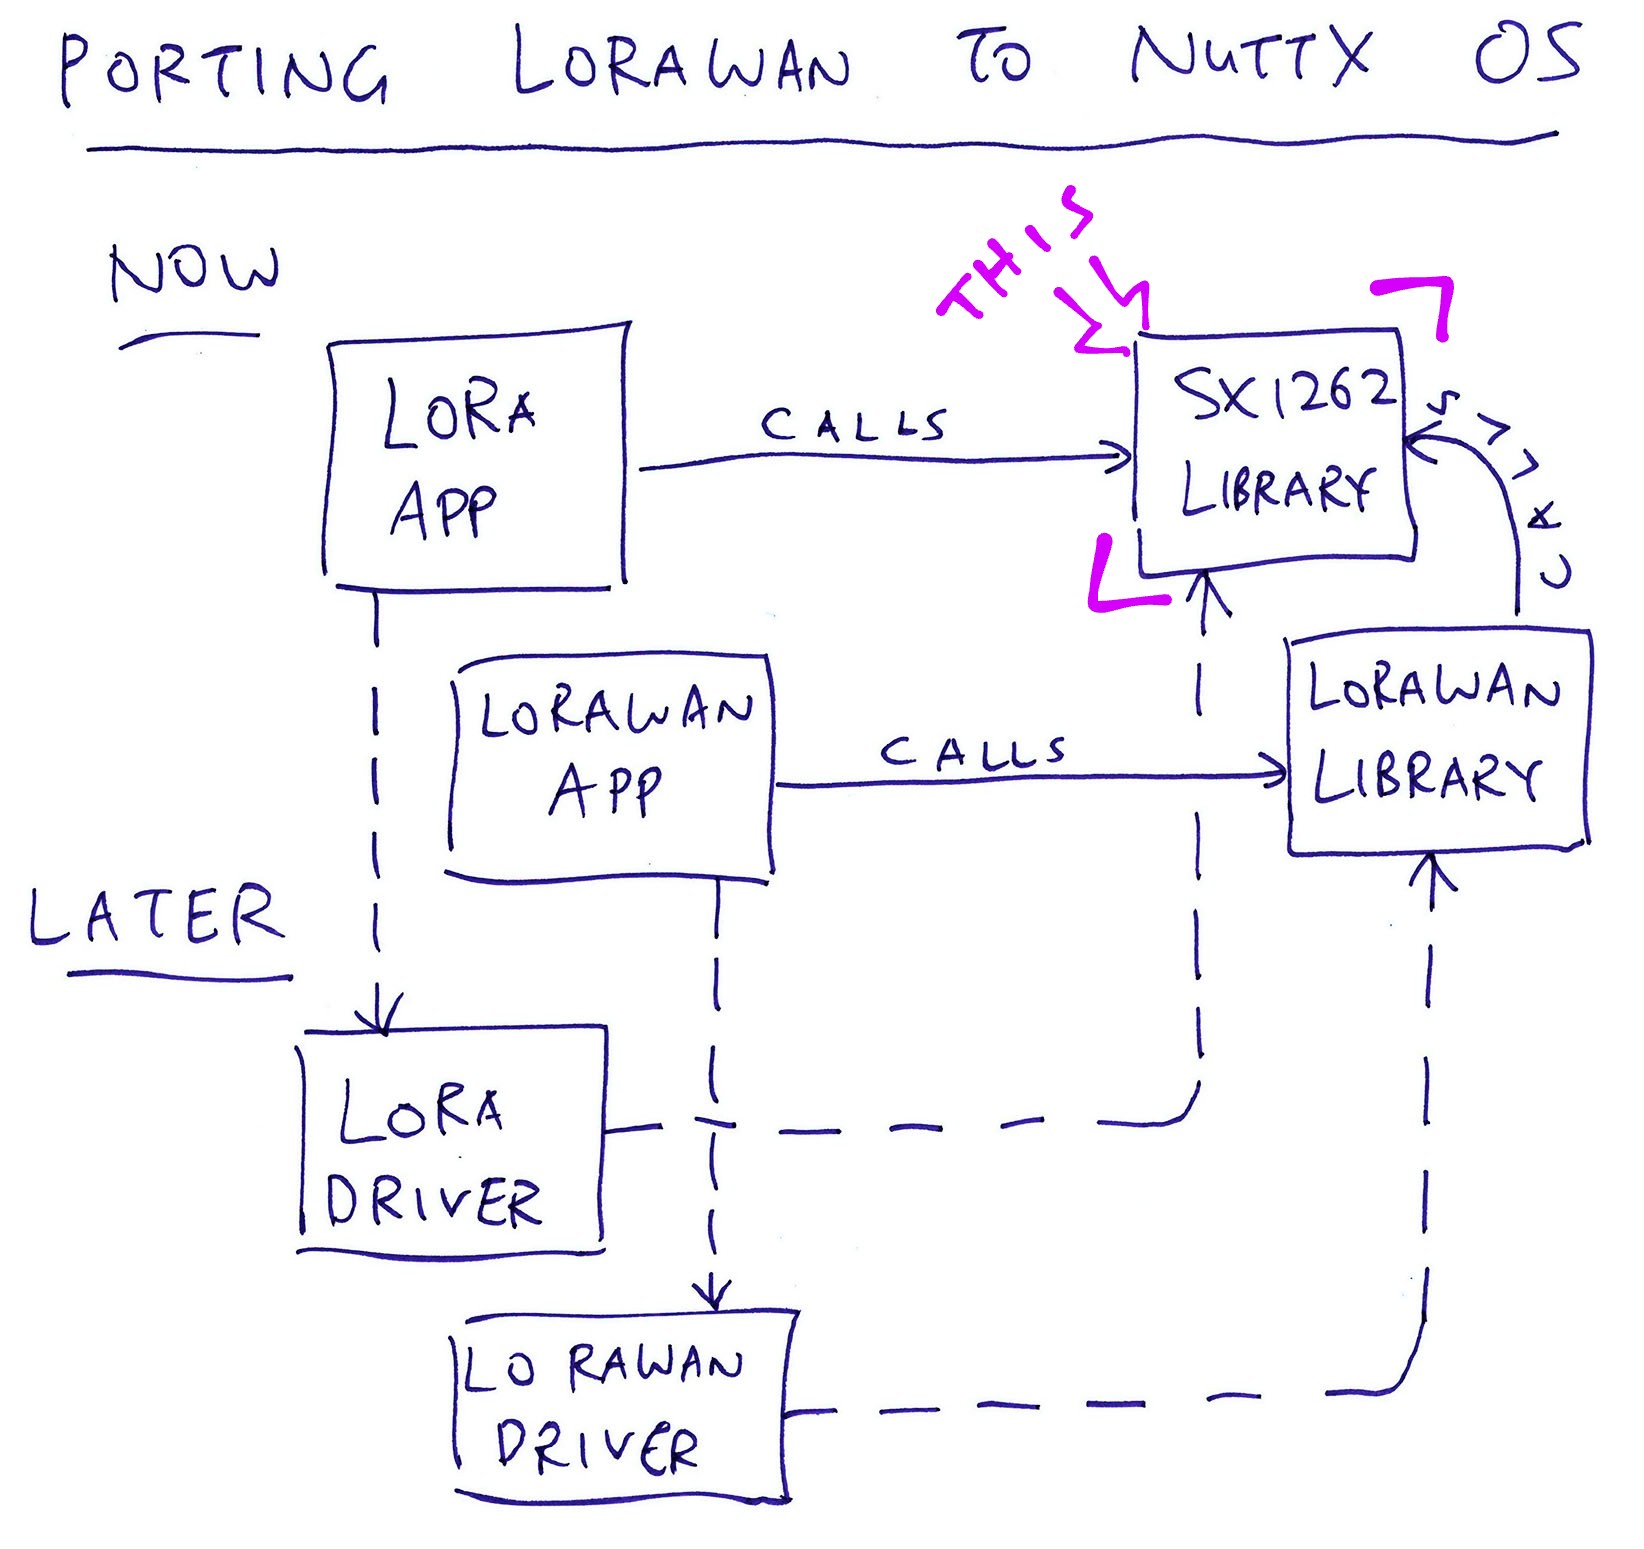 PORTING LORAWAN TO NUTTX OS
NOW
THIS
LORA
APP
CALLS
SX1262
LIBRARY
CALLS
LORAWAN
APP
CALLS
LORAWAN
LIBRARY
LATER
LORA
DRIVER
LORAWAN
DRIVER